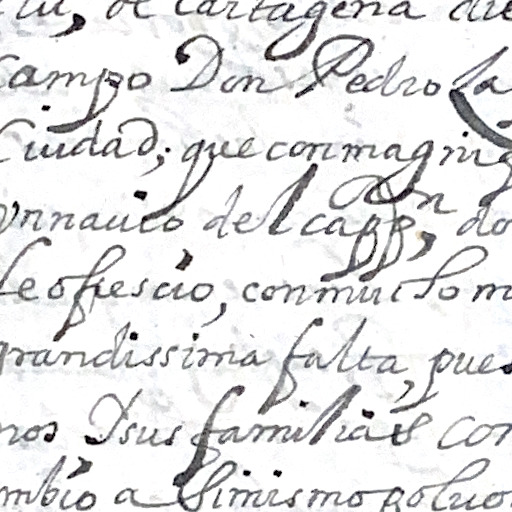 de Cartagena die
Campo Don Pedro La
Ciudad; que con magnig
Vn nauio del capp,an do
le ofrescio, con mucho m
grandissima falta, pues
nos Y sus familias con
mbio a Simismo poluo